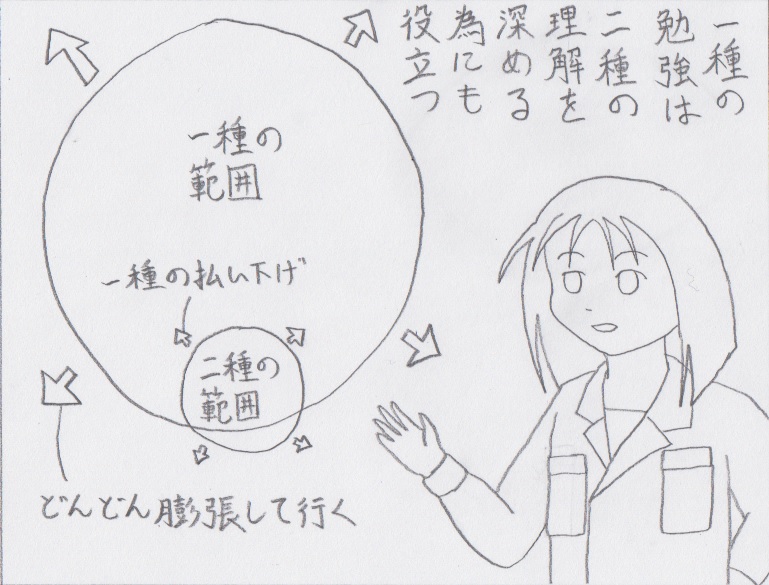 一種の
勉強は
二種の
理解を
深める
為にも
役立つ
一種の
範囲
一種の払い下げ
二種の
範囲
どんどん膨張して行く